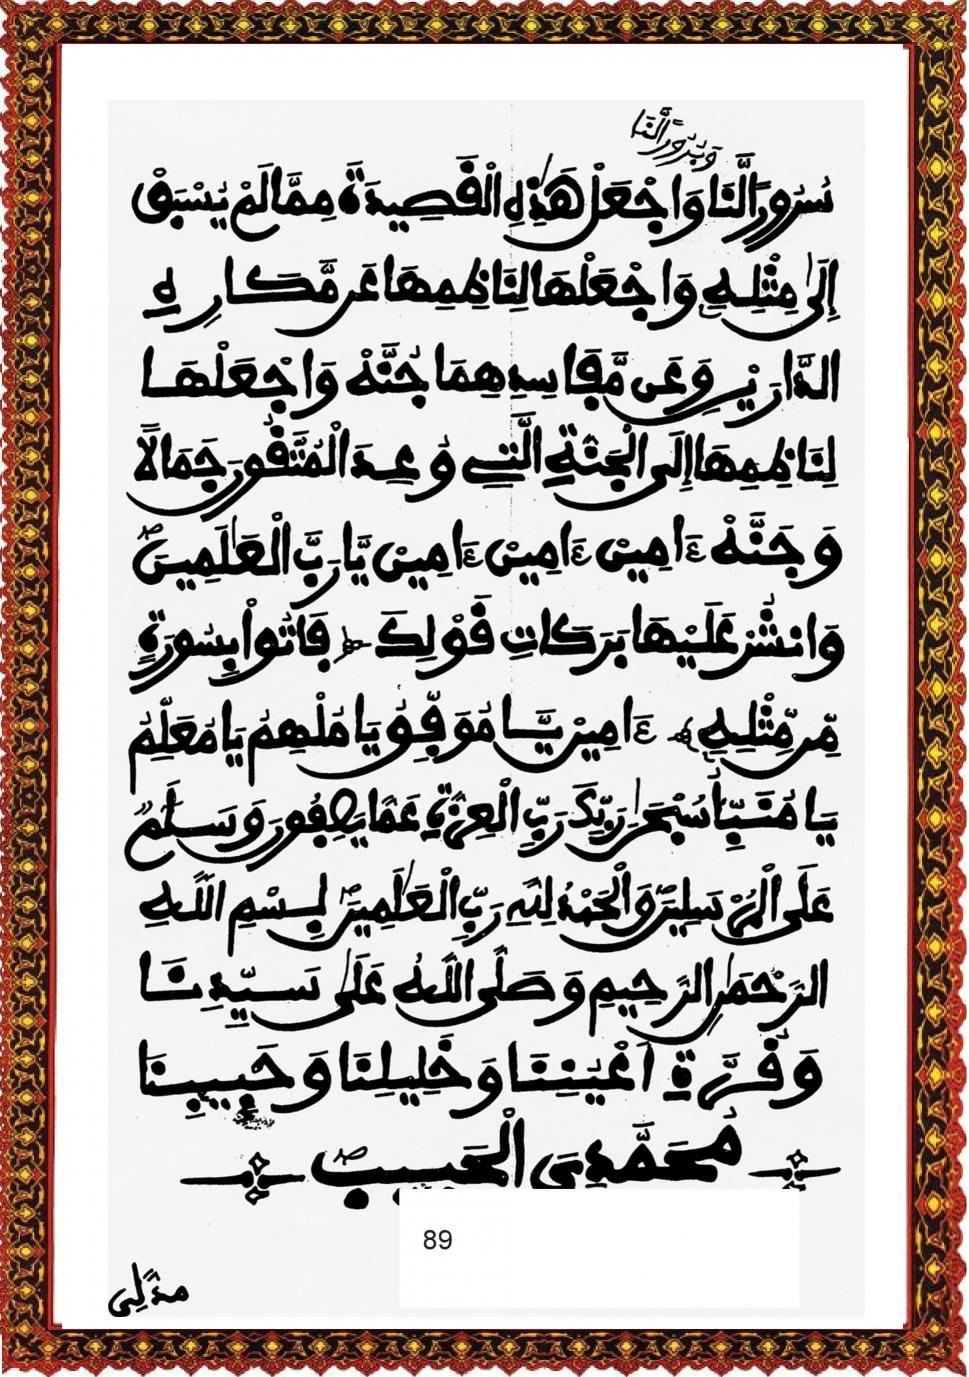 وَبُدُورًا لَّنَا
سُرُورًا لَّنَا وَاجْعَلْ هَٰذِهِ الْقَصِيدَةَ مِمَّا لَمْ يُسْبَقْ
إِلَىٰ مِثْلِهِ وَاجْعَلْهَا لِنَاظِمِهَا عَن مَّكَارِهِ
الدَّارَيْنِ وَعَن مَّفَاسِدِهِمَا جُنَّةً وَاجْعَلْهَا
لِنَاظِمِهَا إِلَى الْجَنَّةِ الَّتِي وُعِدَ الْمُتَّقُونَ جَمَالًا
وَجَنَّةً ءَامِينَ ءَامِينَ ءَامِينَ يَا رَبَّ الْعَٰلَمِينَ
وَانْشُرْ عَلَيْهَا بَرَكَاتِ قَوْلِكَ فَاتُوا بِسُورَةٍ
مِّن مِّثْلِهِ ءَامِين يَا مُوَفِّقُ يَا مُلْهِمُ يَا مُعَلِّمُ
يَا مُنَبِّأُ سُبْحَٰنَ رَبِّكَ رَبِّ الْعِزَّةِ عَمَّا يَصِفُونَ وَسَلَٰمٌ
عَلَى الْمُرْسَلِينَ وَالْحَمْدُ لِلَّهِ رَبِّ الْعَٰلَمِينَ بِسْمِ اللَّهِ
الرَّحْمَٰنِ الرَّحِيمِ وَصَلَّى اللَّهُ عَلَىٰ سَيِّدِنَا
وَقُرَّةِ أَعْيُنِنَا وَخَلِيلِنَا وَحَبِيبِنَا
مُحَمَّدٍ الْحَبِيبِ
89